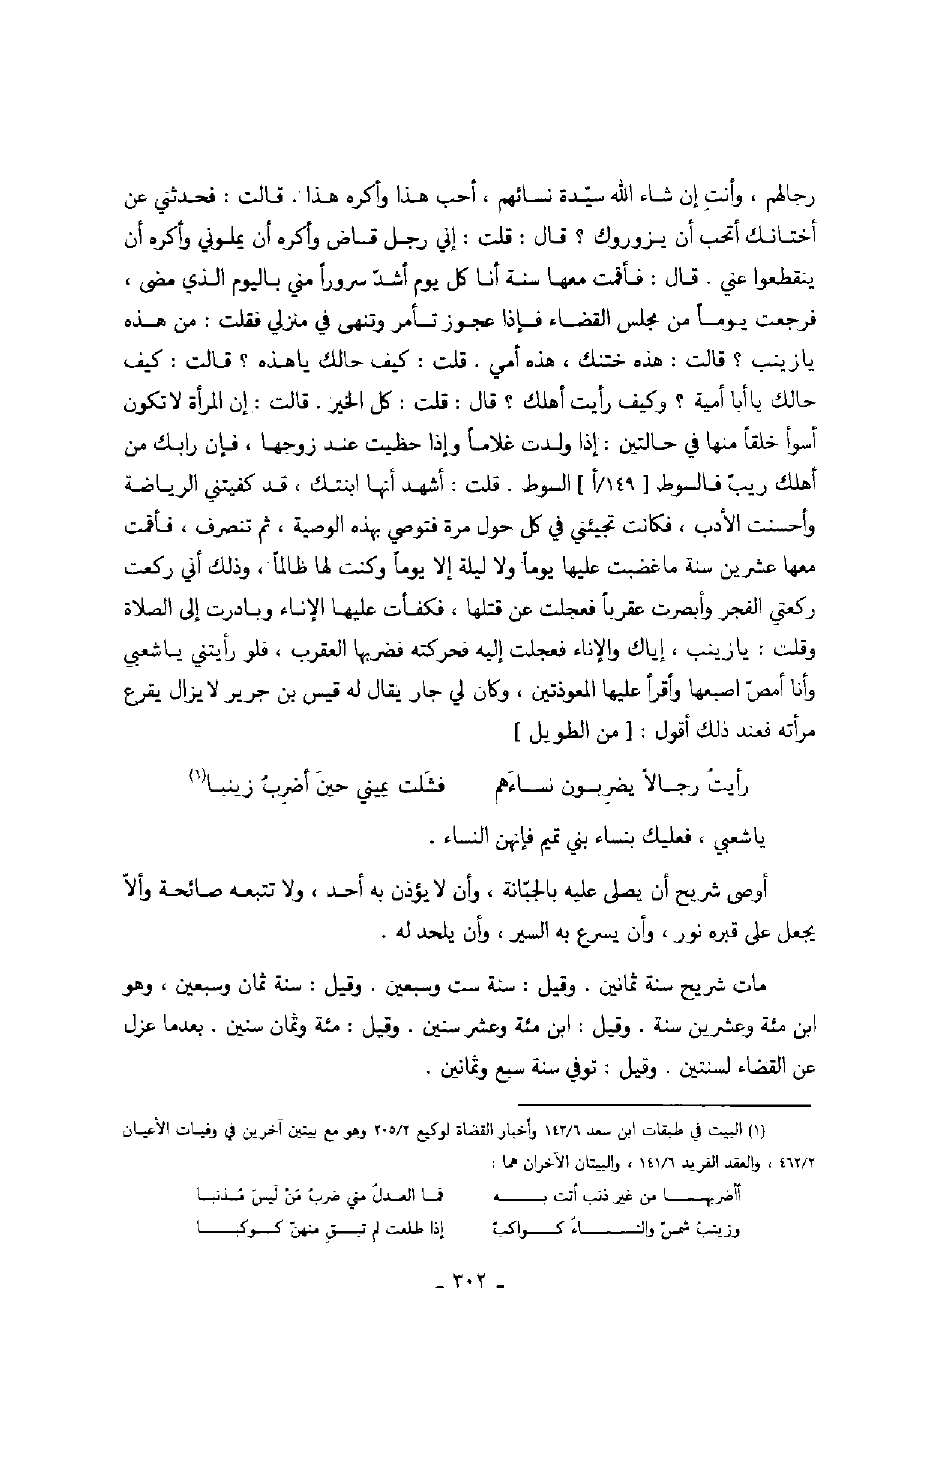 رجالهم ، وأنتِ إن شاء الله سيّدة نسائهم ، أحب هذا وأكره هذا . قالت : فحدثني عن
أختانك أتحب أن يزوروك ؟ قال : قلت : إني رجل قاض وأكره أن يملوني وأكره أن
ينقطعوا عني . قال : فأقمت معها سنة أنا كل يوم أشدّ سروراً مني باليوم الذي مضى ،
فرجعت يوماً من مجلس القضاء فإذا عجوز تأمر وتنهى في منزلي فقلت : من هذه
يازينب ؟ قالت : هذه ختنك ، هذه أمي . قلت : كيف حالك ياهذه ؟ قالت : كيف
حالك ياأبا أمية ؟ وكيف رأيت أهلك ؟ قال : قلت : كل الخير . قالت : إن المرأة لاتكون
أسوأ خلقاً منها في حالتين : إذا ولدت غلاماً وإذا حظيت عند زوجها ، فإن رابك من
أهلك ريبٌ فالسوط [ ١٤٩/أ ] السوط . قلت : أشهد أنها ابنتك ، قد كفيتني الرياضة
وأحسنت الأدب ، فكانت تجيئني في كل حول مرة فتوصي بهذه الوصية ، ثم تنصرف ، فأقمت
معها عشرين سنة ماغضبت عليها يوماً ولا ليلة إلا يوماً وكنت لها ظالماً ، وذلك أني ركعت
ركعتي الفجر وأبصرت عقرباً فعجلت عن قتلها ، فكفأت عليها الإناء وبادرت إلى الصلاة
وقلت : يازينب ، إياك والإناء فعجلت إليه فحركته فضربها العقرب ، فلو رأيتني ياشعبي
وأنا أمصّ اصبعها وأقرأ عليها المعوذتين ، وكان لي جار يقال له قيس بن جرير لايزال يقرع
مرأته فعند ذلك أقول : [ من الطويل ]
رأيتُ رجالاً يضربون نساءَهم فشلت يميني حينَ أضربُ زينبا(١)
ياشعبي ، فعليك بنساء بني تميم فإنهن النساء .
أوصى شريح أن يصلى عليه بالجبّانة ، وأن لايؤذن به أحد ، ولا تتبعه صائحة وألاّ
يجعل على قبره نور ، وأن يسرع به السير ، وأن يلحد له .
مات شريح سنة ثمانين . وقيل : سنة ست وسبعين . وقيل : سنة ثمان وسبعين ، وهو
ابن مئة وعشرين سنة . وقيل : ابن مئة وعشر سنين . وقيل : مئة وثمان سنين . بعدما عزل
عن القضاء لسنتين . وقيل : توفي سنة سبع وثمانين .
(١) البيت في طبقات ابن سعد ١٤٣/٦ وأخبار القضاة لوكيع ٢٠٥/٢ وهو مع بيتين آخرين في وفيات الأعيان
٤٦٢/٢ ، والعقد الفريد ١٤١/٦ ، والبيتان الآخران هما :
أأضربها من غير ذنب أتت به فما العدلُ مني ضربُ مَنْ ليسَ مُذنبا
وزينبُ شمسٌ والنساءُ كواكبٌ إذا طلعت لم تبق منهنّ كوكبا
ـ ٣٠٢ ـ